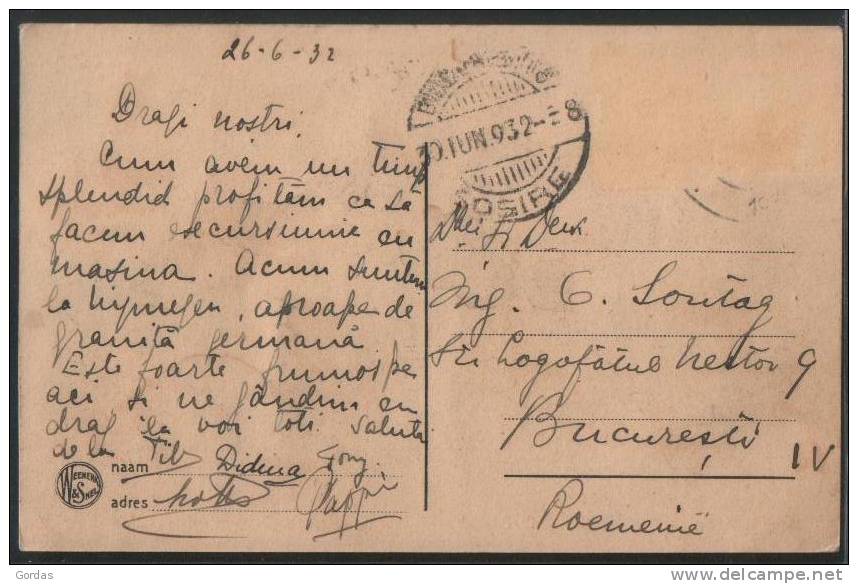 26-6-32
Dragi nostri,
Cum avem un timp
splendid profităm ca să
facem escursiune cu
masina. Acum suntem
la Nijmegen, aproape de
graniță germană
Este foarte frumos pe
aci, si ne gândim cu
drag la voi toti. Salutări
de la Tib Didina Tony
Pappi
naam
adres
WEENENK & SNEL
30 IUN. 932 - 8
SOSIRE
Ing. C. Sontag
Str Logofătul Nestor 9
București
IV
Roemenië
Gordas
delcampe.net